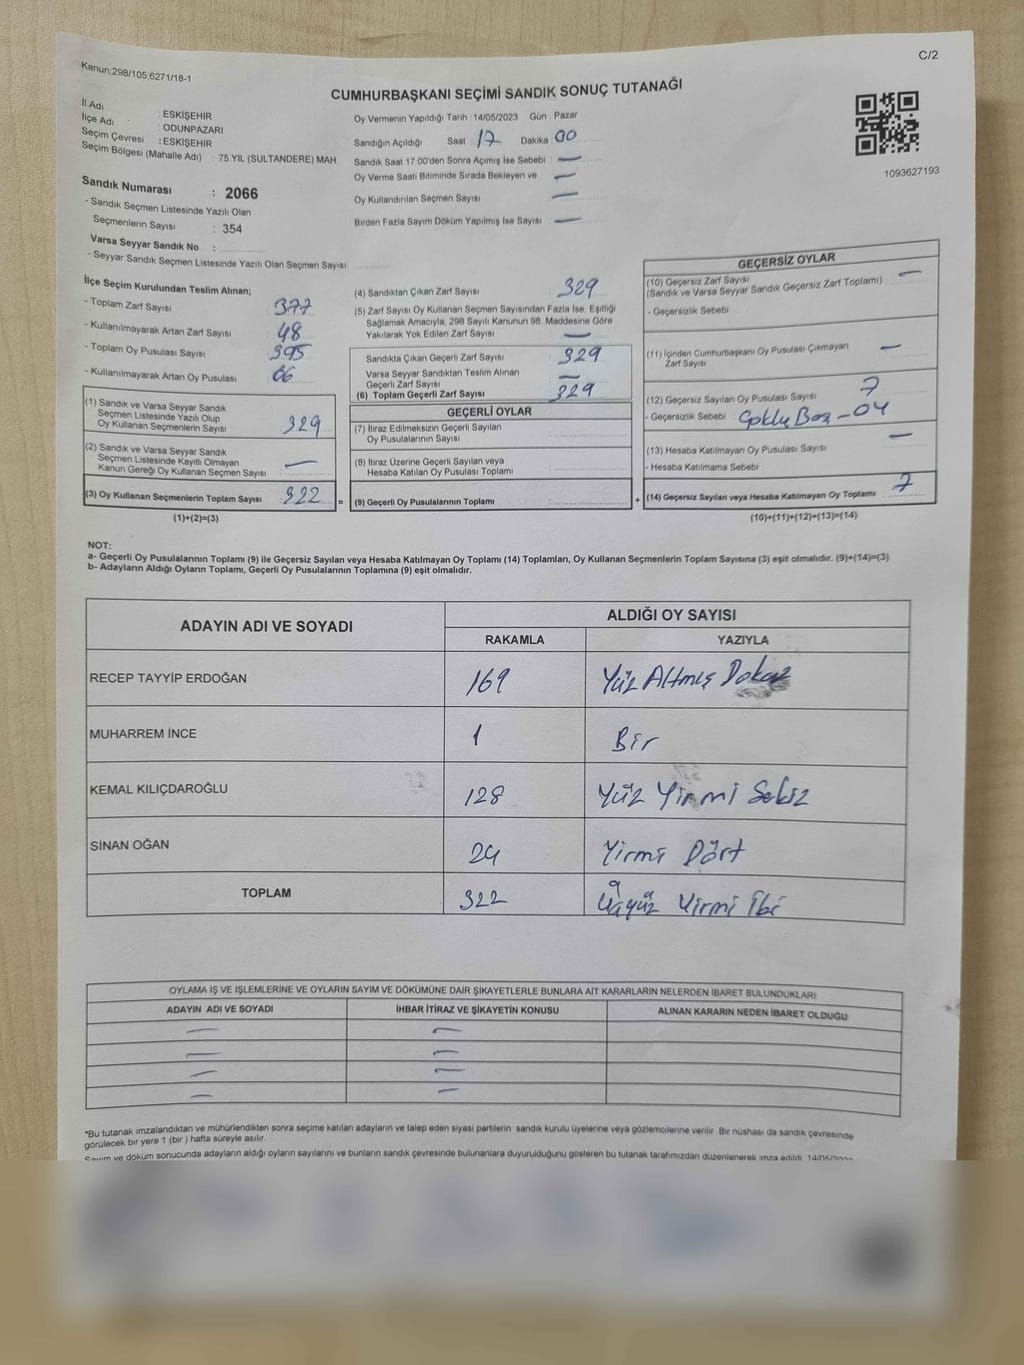 C/2
Kanun:298/105,6271/18-1
CUMHURBAŞKANI SEÇİMİ SANDIK SONUÇ TUTANAĞI
İl Adı : ESKİŞEHİR
İlçe Adı : ODUNPAZARI
Seçim Çevresi : ESKİŞEHİR
Seçim Bölgesi (Mahalle Adı) : 75.YIL (SULTANDERE) MAH
Sandık Numarası : 2066
- Sandık Seçmen Listesinde Yazılı Olan
Seçmenlerin Sayısı : 354
Varsa Seyyar Sandık No :
- Seyyar Sandık Seçmen Listesinde Yazılı Olan Seçmen Sayısı:
Oy Vermenin Yapıldığı Tarih :14/05/2023 Gün Pazar
Sandığın Açıldığı Saat : 17 Dakika : 00
Sandık Saat 17:00'den Sonra Açımış İse Sebebi : —
Oy Verme Saati Bitiminde Sırada Bekleyen ve —
Oy Kullandırılan Seçmen Sayısı —
Birden Fazla Sayım Döküm Yapılmış İse Sayısı : —
1093627193
İlçe Seçim Kurulundan Teslim Alınan;
- Toplam Zarf Sayısı : 377
- Kullanılmayarak Artan Zarf Sayısı : 48
- Toplam Oy Pusulası Sayısı : 395
- Kullanılmayarak Artan Oy Pusulası : 66
(1) Sandık ve Varsa Seyyar Sandık
Seçmen Listesinde Yazılı Olup
Oy Kullanan Seçmenlerin Sayısı : 329
(2) Sandık ve Varsa Seyyar Sandık
Seçmen Listesinde Kayıtlı Olmayan
Kanun Gereği Oy Kullanan Seçmen Sayısı : —
(3) Oy Kullanan Seçmenlerin Toplam Sayısı : 322 =
(1)+(2)=(3)
(4) Sandıktan Çıkan Zarf Sayısı : 329
(5) Zarf Sayısı Oy Kullanan Seçmen Sayısından Fazla İse, Eşitliği
Sağlamak Amacıyla, 298 Sayılı Kanunun 98. Maddesine Göre
Yakılarak Yok Edilen Zarf Sayısı : —
Sandıkta Çıkan Geçerli Zarf Sayısı : 329
Varsa Seyyar Sandıktan Teslim Alınan
Geçerli Zarf Sayısı : —
(6) Toplam Geçerli Zarf Sayısı : 329
GEÇERLİ OYLAR
(7) İtiraz Edilmeksizin Geçerli Sayılan
Oy Pusulalarının Sayısı :
(8) İtiraz Üzerine Geçerli Sayılan veya
Hesaba Katılan Oy Pusulası Toplamı :
(9) Geçerli Oy Pusulalarının Toplamı : +
GEÇERSİZ OYLAR
(10) Geçersiz Zarf Sayısı : —
(Sandık ve Varsa Seyyar Sandık Geçersiz Zarf Toplamı)
- Geçersizlik Sebebi
(11) İçinden Cumhurbaşkanı Oy Pusulası Çıkmayan : —
Zarf Sayısı
(12) Geçersiz Sayılan Oy Pusulası Sayısı : 7
- Geçersizlik Sebebi
(13) Hesaba Katılmayan Oy Pusulası Sayısı : —
- Hesaba Katılmama Sebebi
(14) Geçersiz Sayılan veya Hesaba Katılmayan Oy Toplamı : 7
(10)+(11)+(12)+(13)=(14)
NOT:
a- Geçerli Oy Pusulalarının Toplamı (9) ile Geçersiz Sayılan veya Hesaba Katılmayan Oy Toplamı (14) Toplamları, Oy Kullanan Seçmenlerin Toplam Sayısına (3) eşit olmalıdır. (9)+(14)=(3)
b- Adayların Aldığı Oyların Toplamı, Geçerli Oy Pusulalarının Toplamına (9) eşit olmalıdır.
ADAYIN ADI VE SOYADI ALDIĞI OY SAYISI
RAKAMLA YAZIYLA
RECEP TAYYİP ERDOĞAN 169 Yüz Altmış Dokuz
MUHARREM İNCE 1 Bir
KEMAL KILIÇDAROĞLU 128 Yüz Yirmi Sekiz
SİNAN OĞAN 24 Yirmi Dört
TOPLAM 322 Üçyüz Yirmi İki
OYLAMA İŞ VE İŞLEMLERİNE VE OYLARIN SAYIM VE DÖKÜMÜNE DAİR ŞİKAYETLERLE BUNLARA AİT KARARLARIN NELERDEN İBARET BULUNDUKLARI
ADAYIN ADI VE SOYADI İHBAR İTİRAZ VE ŞİKAYETİN KONUSU ALINAN KARARIN NEDEN İBARET OLDUĞU
— —
— —
— —
— —
*Bu tutanak imzalandıktan ve mühürlendikten sonra seçime katılan adayların ve talep eden siyasi partilerin sandık kurulu üyelerine veya gözlemcilerine verilir. Bir nüshası da sandık çevresinde
görülecek bir yere 1 (bir ) hafta süreyle asılır.
Sayım ve döküm sonucunda adayların aldığı oyların sayılarını ve bunların sandık çevresinde bulunanlara duyurulduğunu gösteren bu tutanak tarafımızdan düzenlenerek imza edildi.